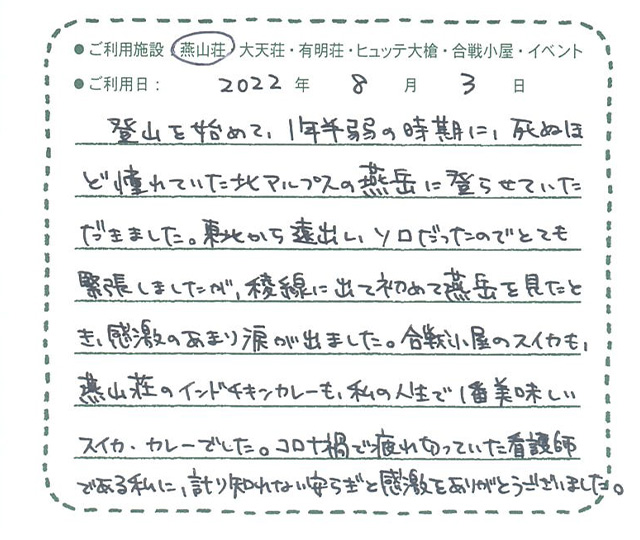 ●ご利用施設 燕山荘・大天荘・有明荘・ヒュッテ大槍・合戦小屋・イベント
●ご利用日： 2022 年 8 月 3 日
登山を始めて、1年半弱の時期に、死ぬほ
ど憧れていた北アルプスの燕岳に登らせていた
だきました。東北から遠出し、ソロだったのでとても
緊張しましたが、稜線に出て初めて燕岳を見たと
き、感激のあまり涙が出ました。合戦小屋のスイカも、
燕山荘のインドチキンカレーも、私の人生で1番美味しい
スイカ・カレーでした。コロナ禍で疲れ切っていた看護師
である私に、計り知れない安らぎと感激をありがとうございました。